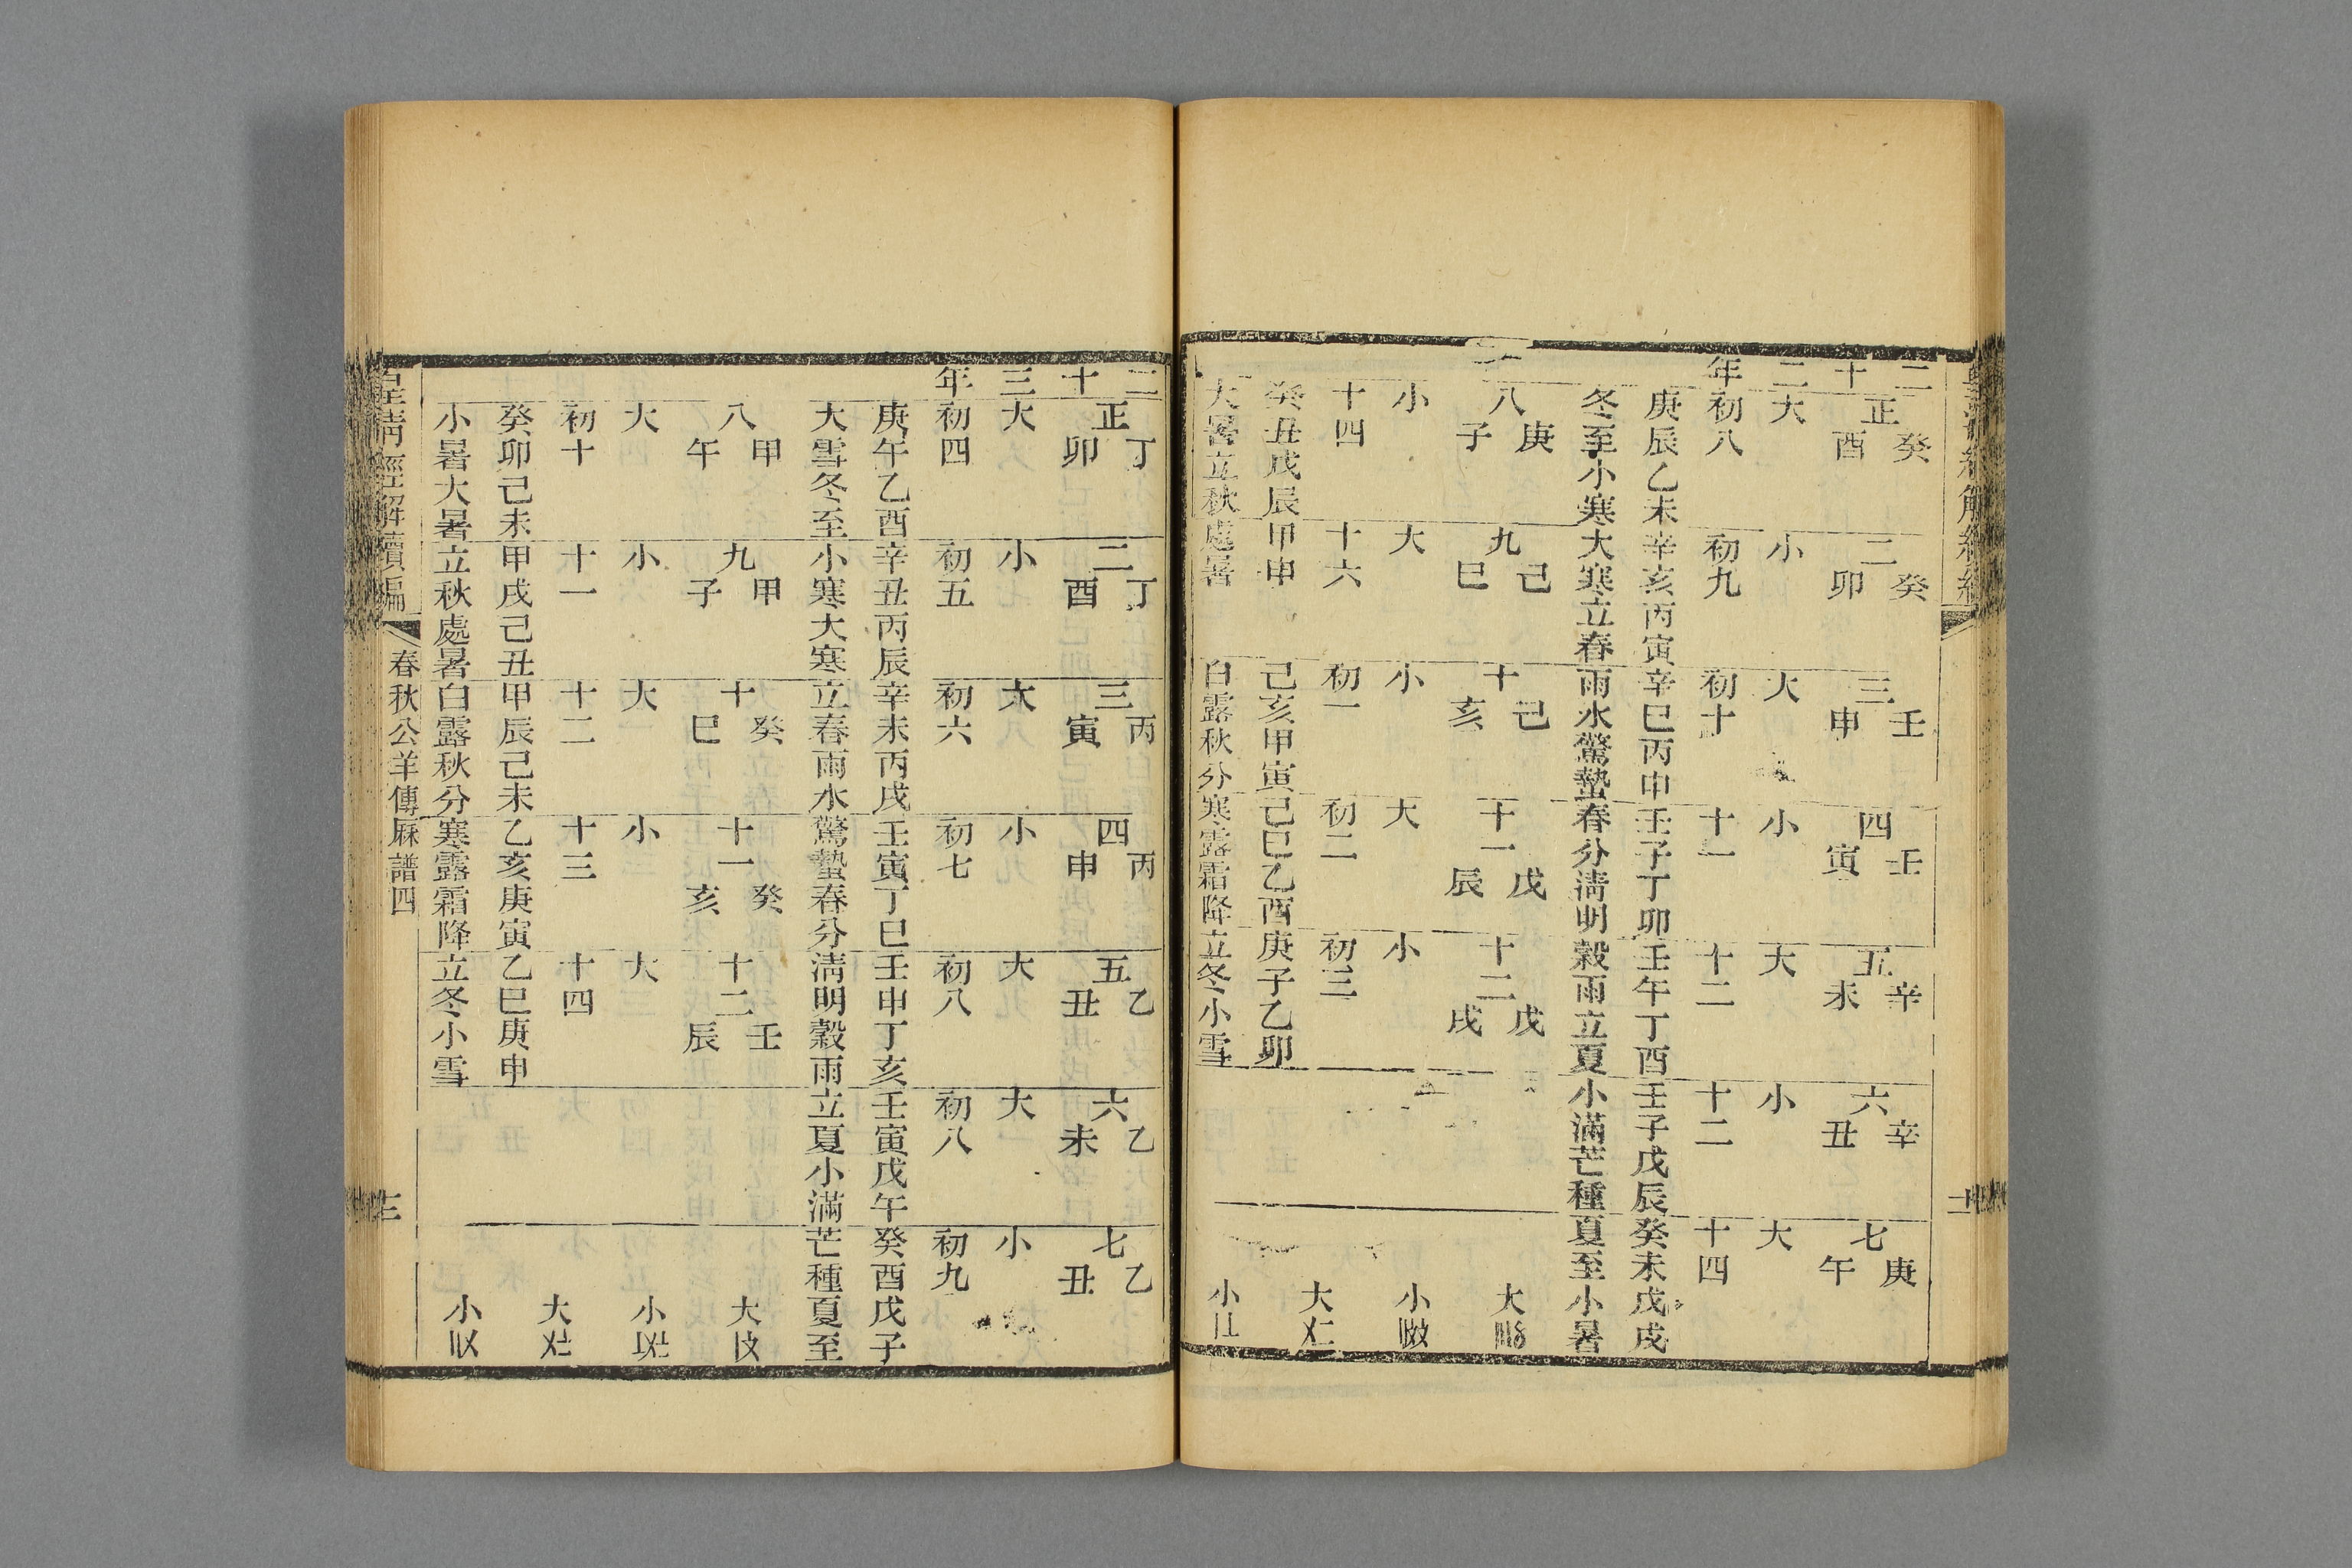 二十二年
正 癸酉 二 癸卯 三 壬申 四 壬寅 五 辛未 六 辛丑 七 庚午
大 小 大 小 大 小 大
初八 初九 初十 十一 十二 十二 十四
庚辰乙未辛亥丙寅辛巳丙申壬子丁卯壬午丁酉壬子戊辰癸未戊戌
冬至小寒大寒立春雨水驚蟄春分淸明榖雨立夏小滿芒種夏至小暑
八 庚子 九 己巳 十 己亥 十一 戊辰 十二 戊戌
小 大 小 大 小
十四 十六 初一 初二 初三
癸丑戊辰甲申 己亥甲寅己巳乙酉庚子乙卯
大暑立秋處暑 白露秋分寒露霜降立冬小雪
大
小
大
小
二十三年
正 丁卯 二 丁酉 三 丙寅 四 丙申 五 乙丑 六 乙未 七 乙丑
大 小 大 小 大 大 小
初四 初五 初六 初七 初八 初八 初九
庚午乙酉辛丑丙辰辛未丙戌壬寅丁巳壬申丁亥壬寅戊午癸酉戊子
大雪冬至小寒大寒立春雨水驚蟄春分淸明榖雨立夏小滿芒種夏至
八 甲午 九 甲子 十 癸巳 十一 癸亥 十二 壬辰
大 小 大 小 大
初十 十一 十二 十三 十四
癸卯己未甲戌己丑甲辰己未乙亥庚寅乙巳庚申
小暑大暑立秋處暑白露秋分寒露霜降立冬小雪
大
小
大
小
皇淸經解續編 春秋公羊傳厤譜四